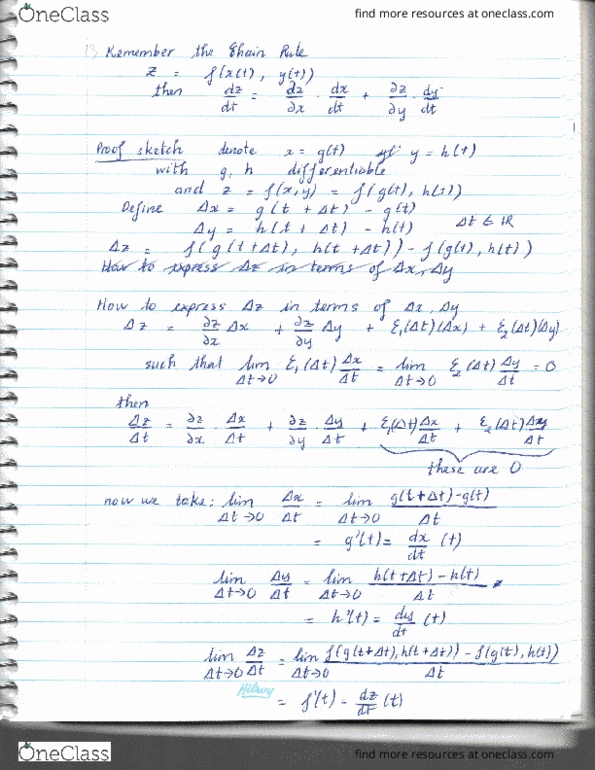 OneClass
find more resources at oneclass.com
13 Remember the Chain Rule
z = f(x(t), y(t))
then dz/dt = ∂z/∂x · dx/dt + ∂z/∂y · dy/dt
Proof sketch denote x = g(t) y = h(t)
with g, h differentiable
and z = f(x,y) = f(g(t), h(t))
Define Δx = g(t + Δt) - g(t)
Δy = h(t + Δt) - h(t) Δt ∈ ℝ
Δz = f(g(t+Δt), h(t+Δt)) - f(g(t), h(t))
How to express Δz in terms of Δx, Δy
How to express Δz in terms of Δx, Δy
Δz = ∂z/∂x Δx + ∂z/∂y Δy + ε₁(Δt)(Δx) + ε₂(Δt)(Δy)
such that lim Δt→0 ε₁(Δt) Δx/Δt = lim Δt→0 ε₂(Δt) Δy/Δt = 0
then
Δz/Δt = ∂z/∂x · Δx/Δt + ∂z/∂y · Δy/Δt + ε₁(Δt) Δx/Δt + ε₂(Δt) Δy/Δt
these are 0
now we take: lim Δt→0 Δx/Δt = lim Δt→0 g(t+Δt)-g(t)/Δt
= g'(t) = dx/dt (t)
lim Δt→0 Δy/Δt = lim Δt→0 h(t+Δt) - h(t)/Δt
= h'(t) = dy/dt (t)
lim Δt→0 Δz/Δt = lim Δt→0 f(g(t+Δt), h(t+Δt)) - f(g(t), h(t))/Δt
= f'(t) - dz/dt (t)
Hilroy
OneClass
find more resources at oneclass.com